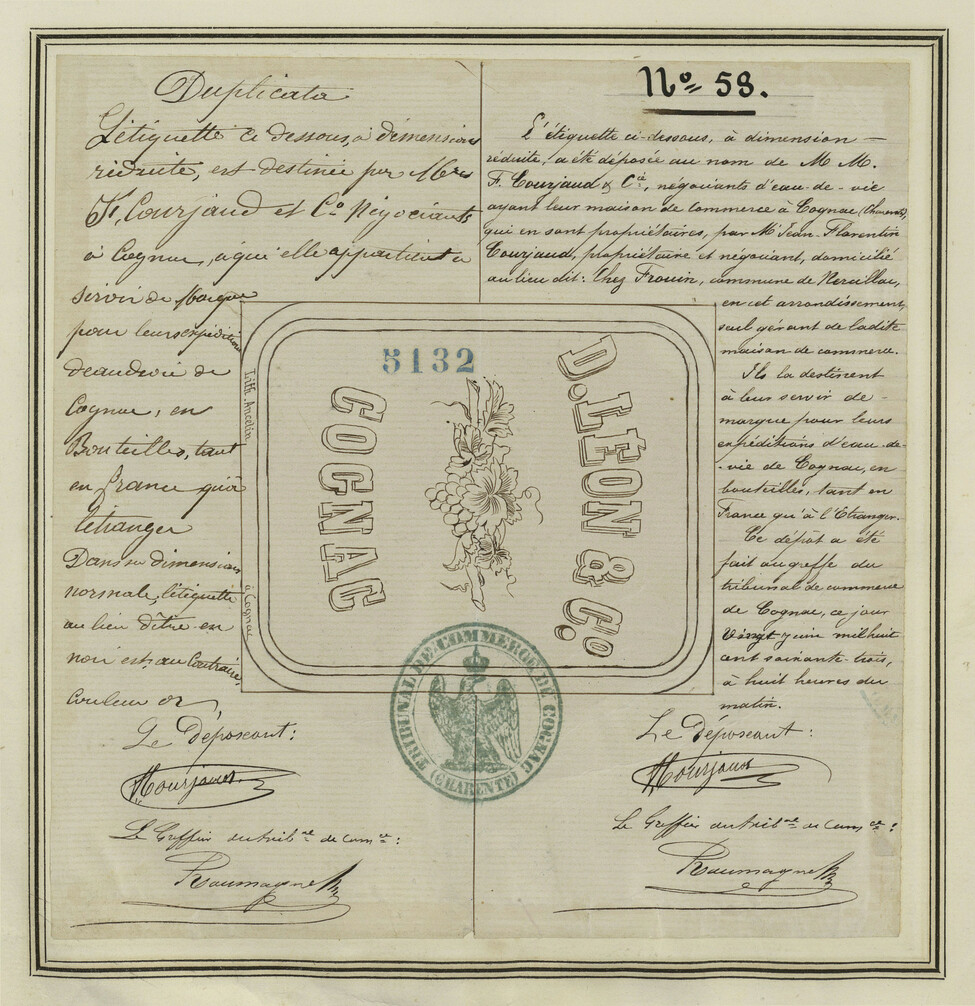 Duplicata
L'étiquette ci dessous, à démension
réduite, est destinée par Mrs
F. Courjaud et Co Négociants
à Cognac, à qui elle appartient à
servir de Marque
pour leurs expéditions
d'eau de vie de
Cognac, en
Bouteilles, tant
en france qu'à
l'étranger
Dans sa dimension
normale, l'étiquette
au lieu d'être en
noir est, au Contraire,
Couleur or
Le Déposant:
FCourjaud
Le Greffier du trib.al de com.ce:
Roumagne
No 58.
L'étiquette ci-dessous, à dimension
réduite, a été déposée au nom de M M.
F. Courjaud & Cie, négociants d'eau-de-vie
ayant leur maison de commerce à Cognac (Charente),
qui en sont propriétaires, par Mr Jean-Florentin
Courjaud, propriétaire et négociant, domicilié
au lieu dit: Chez Frouin, commune de Nercillac,
en cet arrondissement,
seul gérant de ladite
maison de commerce.
Ils la destinent
à leur servir de
marque pour leurs
expéditions d'eau-de-
-vie de Cognac, en
bouteilles, tant en
France qu'à l'Etranger.
Ce dépôt a été
fait au greffe du
tribunal de commerce
de Cognac, ce jour
Vingt juin mil huit
cent soixante-trois,
à huit heures du
matin.
Le Déposant:
FCourjaud
Le Greffier du trib.al de com.ce:
Roumagne
5132
D. LÉON & Co.
COGNAC
Lith. Ancelin, à Cognac
TRIBUNAL DE COMMERCE DE COGNAC
(CHARENTE)